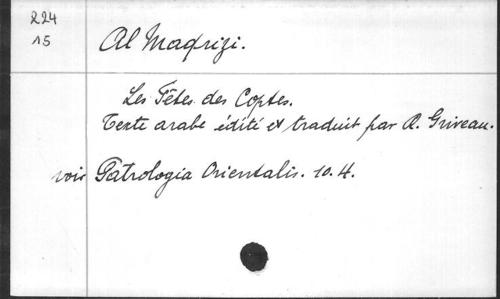 224
15
Al Maqrizi.
Les Fêtes des Coptes.
Texte arabe édité et traduit par R. Griveau.
voir Patrologia Orientalis. 10.4.